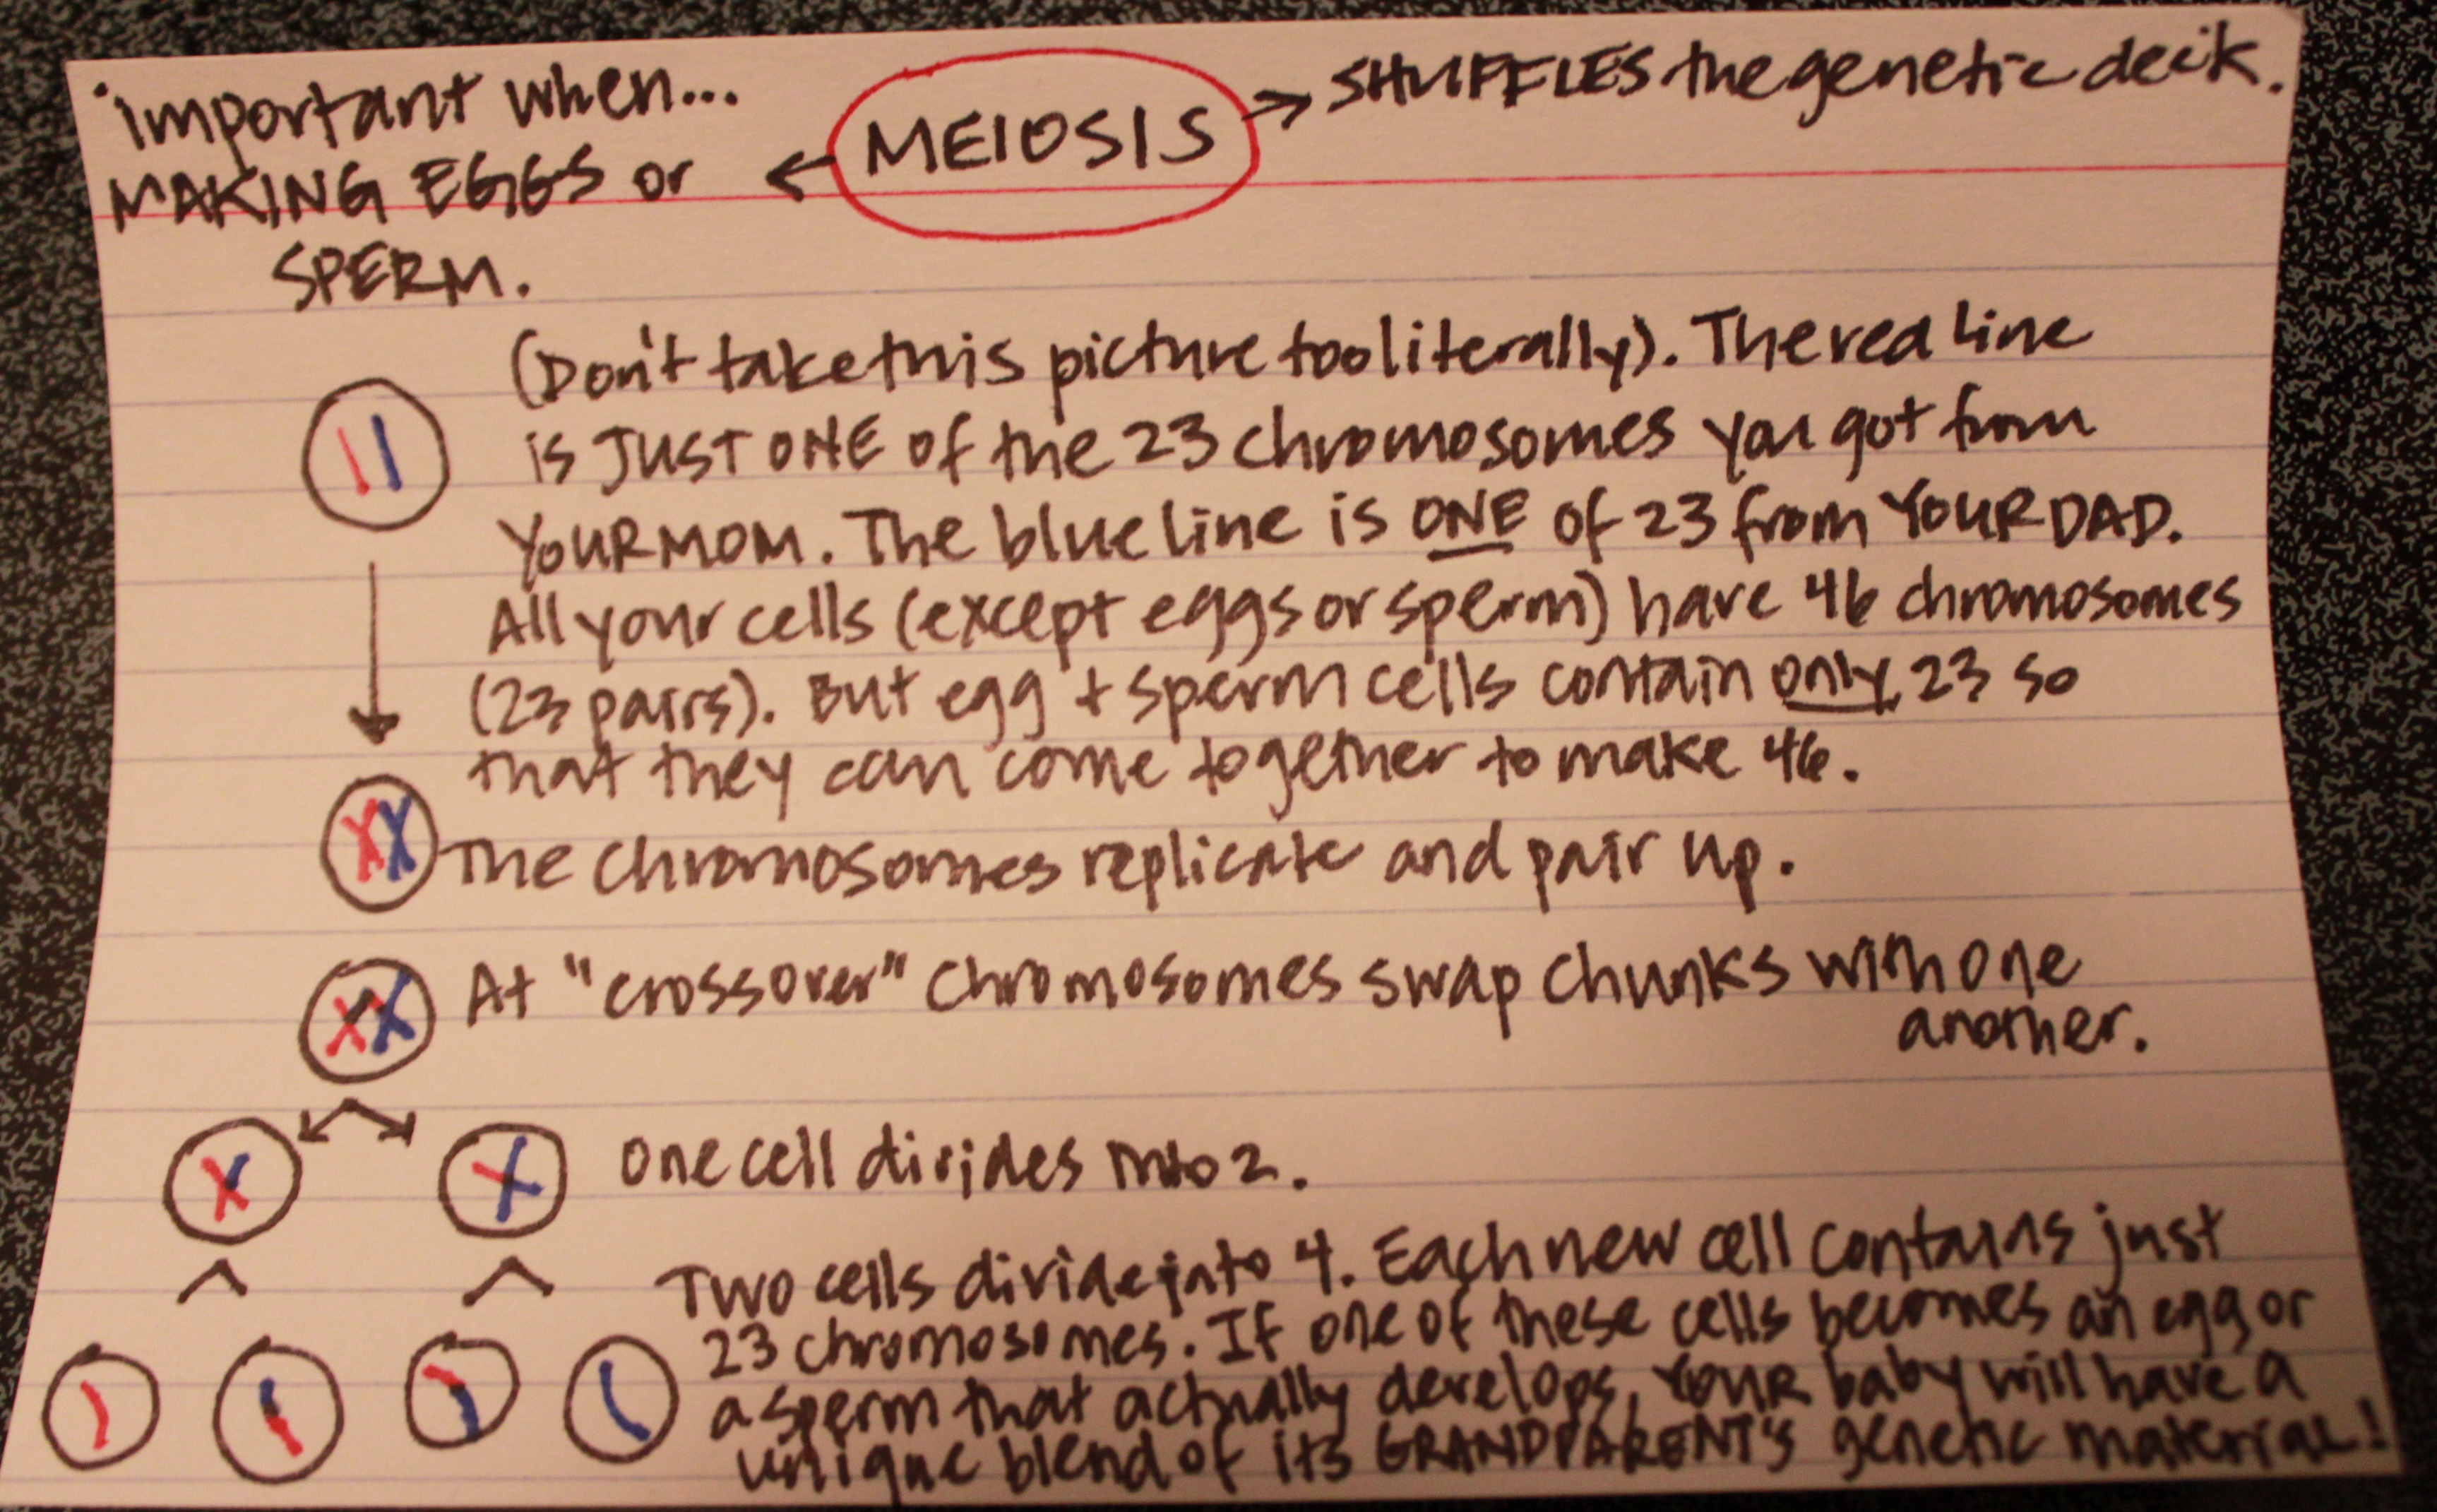 important when...
MAKING EGGS or
SPERM.
MEIOSIS
SHUFFLES the genetic deck.
(Don't take this picture too literally). The red line
is JUST ONE of the 23 chromosomes you got from
YOUR MOM. The blue line is ONE of 23 from YOUR DAD.
All your cells (except eggs or sperm) have 46 chromosomes
(23 pairs). But egg + sperm cells contain only 23 so
that they can come together to make 46.
The chromosomes replicate and pair up.
At "crossover" chromosomes swap chunks with one
another.
One cell divides into 2.
Two cells divide into 4. Each new cell contains just
23 chromosomes. If one of these cells becomes an egg or
a sperm that actually develops, YOUR baby will have a
unique blend of its GRANDPARENT's genetic material!